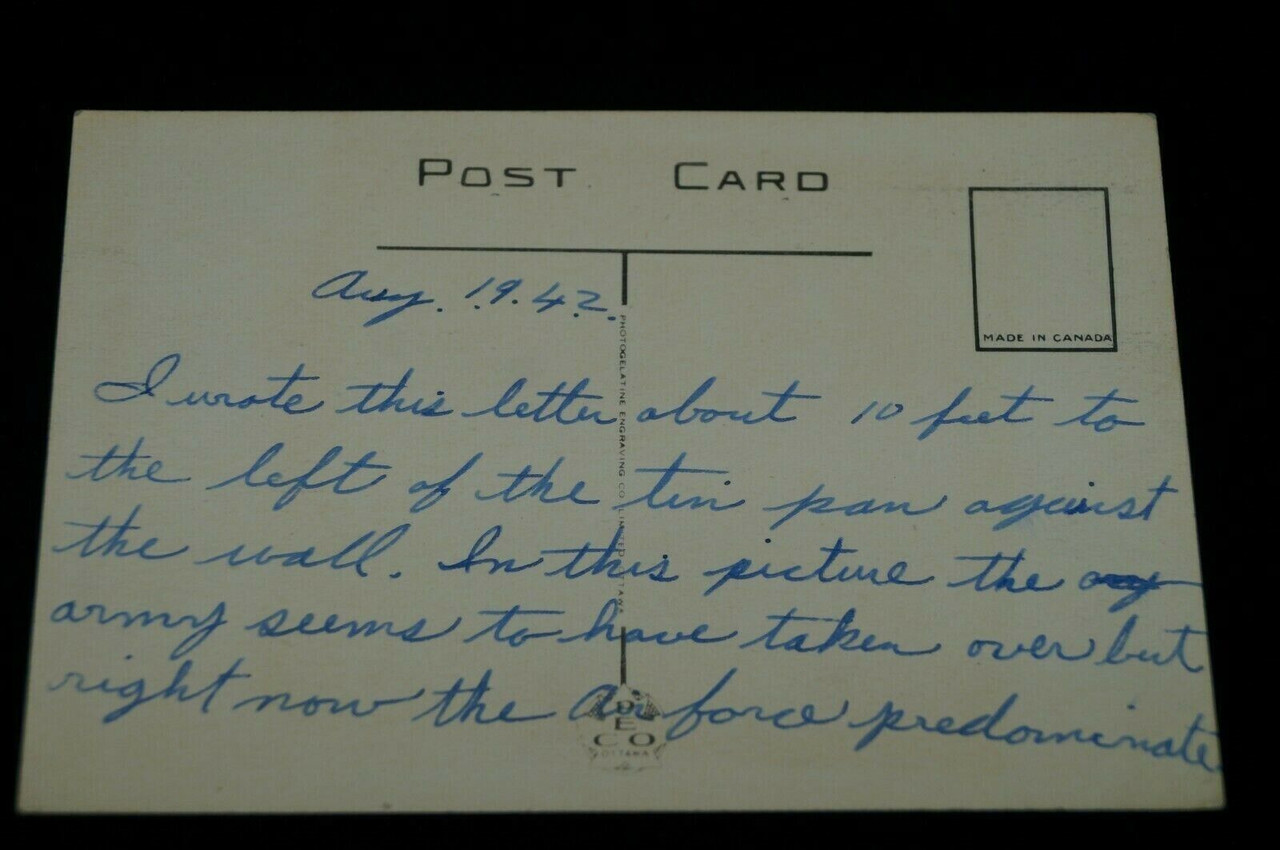 POST CARD
Aug. 19. 42.
MADE IN CANADA
PHOTOGELATINE ENGRAVING CO. LIMITED OTTAWA
I wrote this letter about 10 feet to
the left of the tin pan against
the wall. In this picture the
army seems to have taken over but
right now the Air force predominate
PECO
OTTAWA